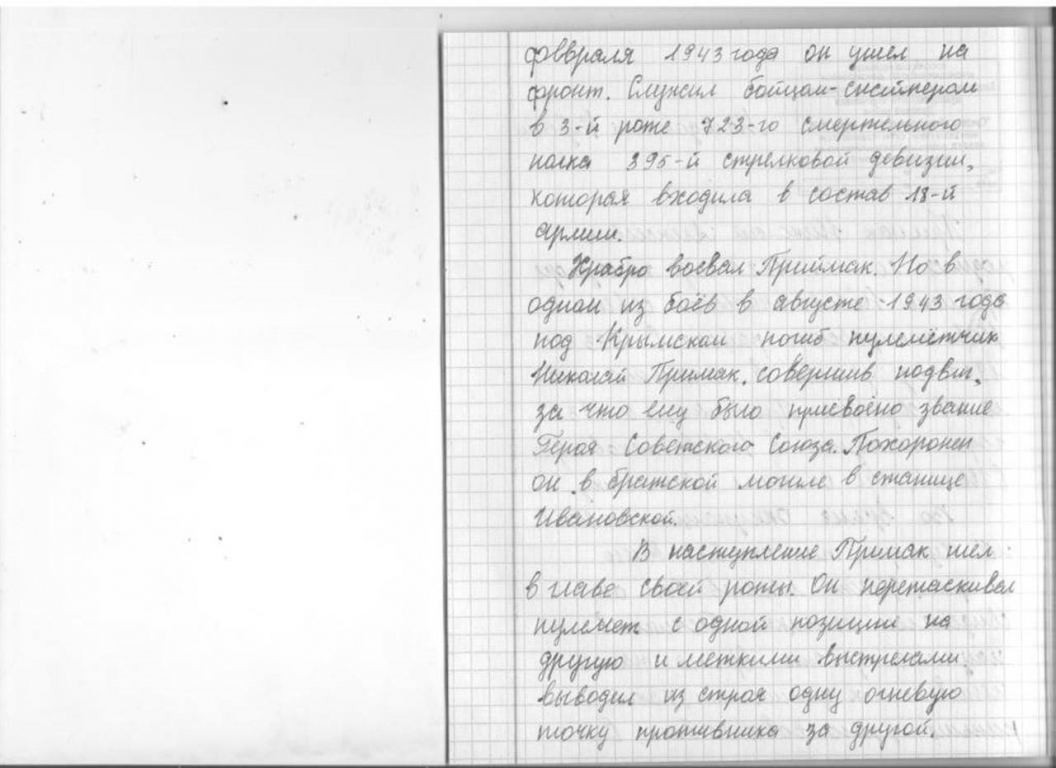 феввраля 1943 года он ушел на
фронт. Служил бойцом-снейпером
в 3-й роте 723-го смертельного
полка 395-й стрелковой девизии,
которая входила в состав 18-й
армии.
Храбро воевал Приймак. Но в
одном из боёв в августе 1943 года
под Крымском погиб пулемётчик
Николай Примак, совершив подвиг,
за что ему было присвоено звание
Героя Советского Союза. Похоронен
он в братской могиле в станице
Ивановской.
В наступление Примак шёл
в главе своей роты. Он перетаскивал
пулемет с одной позиции на
другую и меткими выстрелами
выводил из строя одну огневую
точку противника за другой.